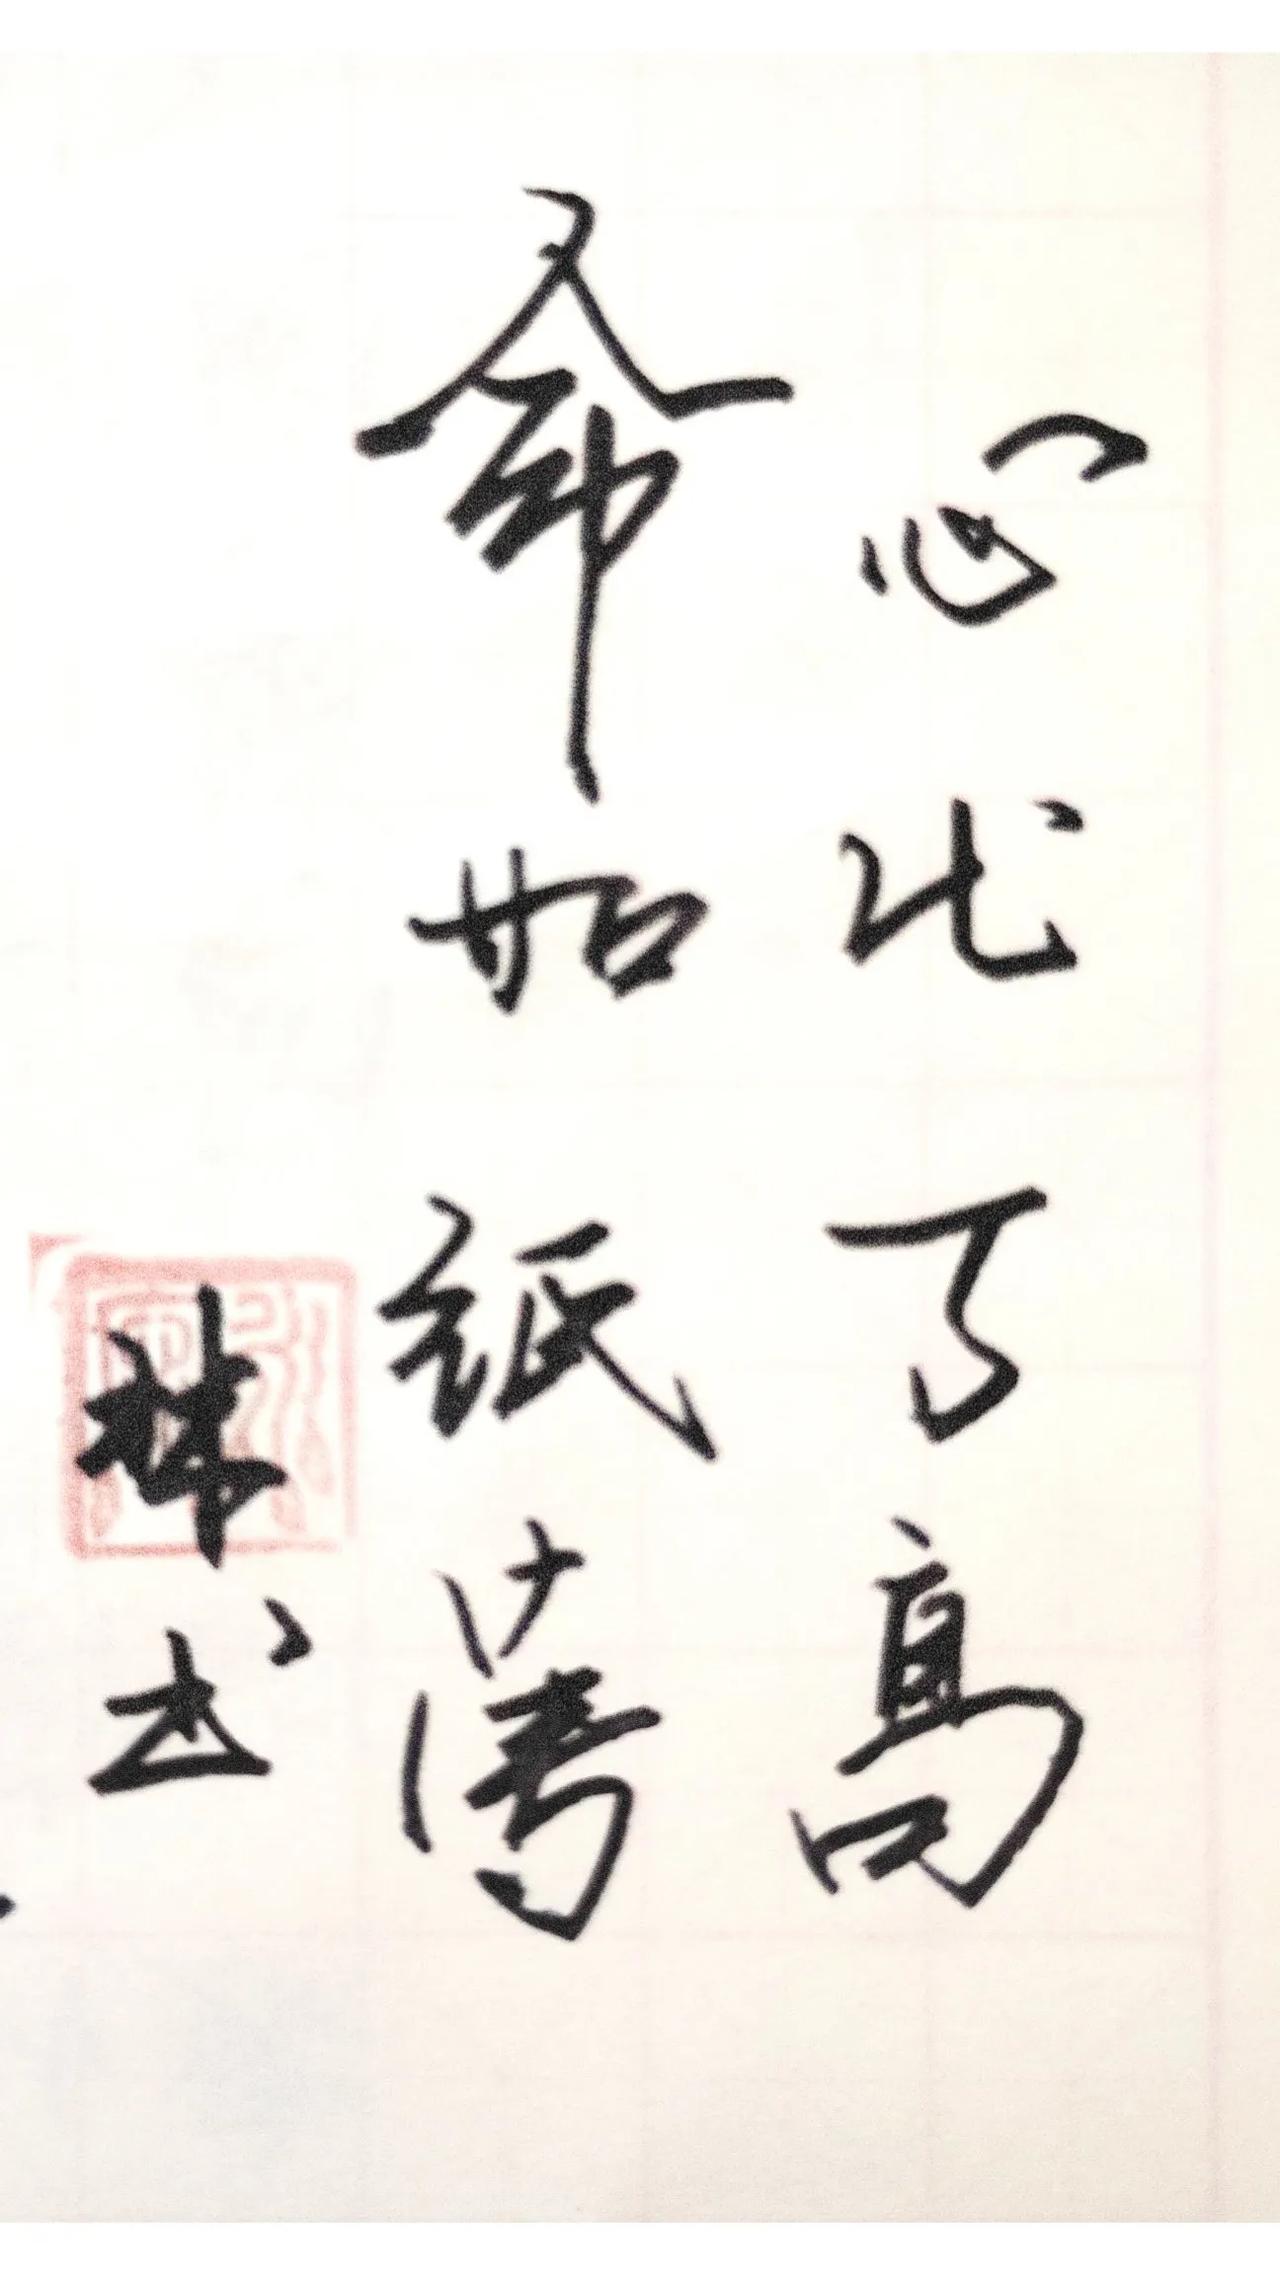 心比天高
命如纸薄
林书